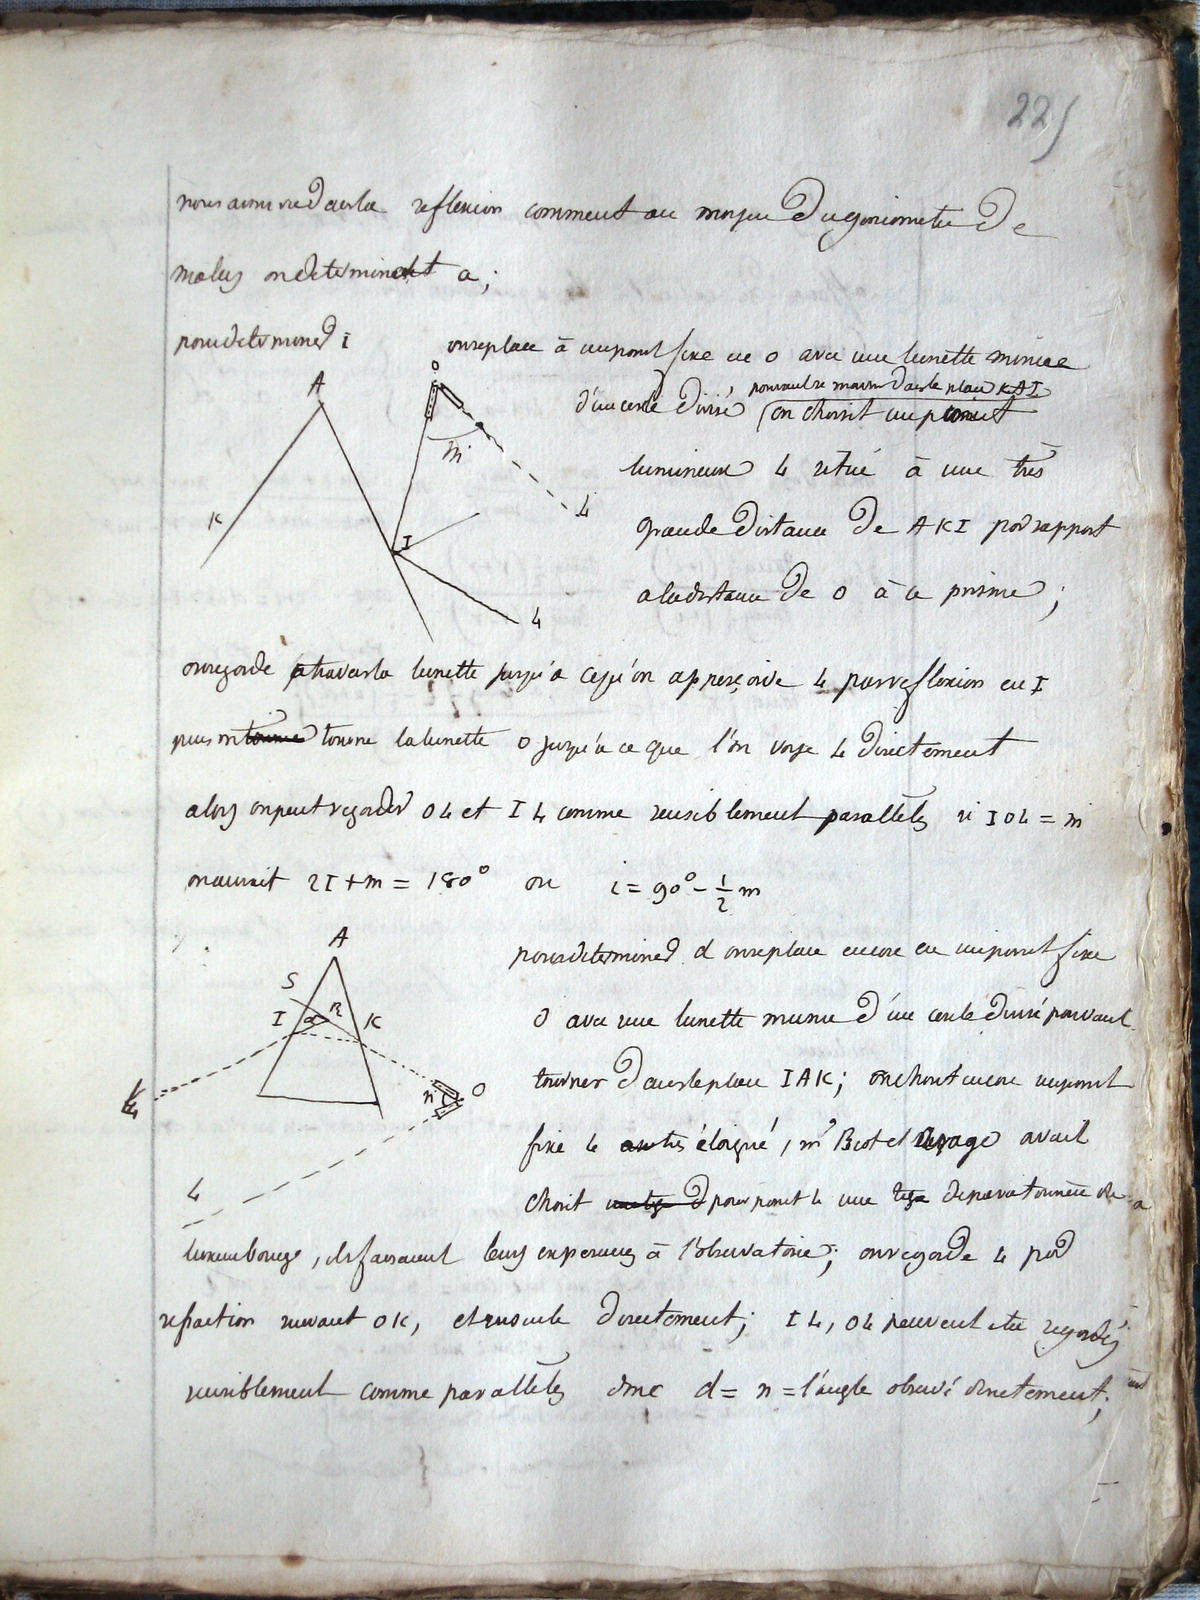 225
nous avons vu dans la reflexion comment au moyen du goniometre de
malus on determinait a;
pour determiner i on se place à un point fixe en O avec une lunette munie
A
O
pouvant se mouvoir dans le plan KAI
d'un cercle divisé on choisit un point
m
lumineux L situé à une très
K
I
L
grande distance de AKI par rapport
a la distance de O à ce prisme;
L
on regarde a travers la lunette jusqu'à ce qu'on apperçoive L par reflexion en I
puis on tourne tourne la lunette O jusqu'à ce que l'on voye L directement
alors on peut regarder OL et IL comme sensiblement parallèles si IOL = m
on aurait 2I + m = 180° ou i = 90° - 1/2 m
A
pour determiner d on se place encore en un point fixe
S
I
R
K
O avec une lunette munie d'un cercle divisé pouvant
tourner dans le plan IAK; on choisit encore un point
L
n
O
fixe L très éloigné, mr Biot et Arago avait
L
choisit pour point L une tige de paratonnerre du
luxembourg, ils faisaient leurs experiences à l'observatoire; on regarde L par
refraction suivant OK, et ensuite directement; IL, OL peuvent etre regardés
sensiblement comme parallèles donc d = n = l'angle observé directement;